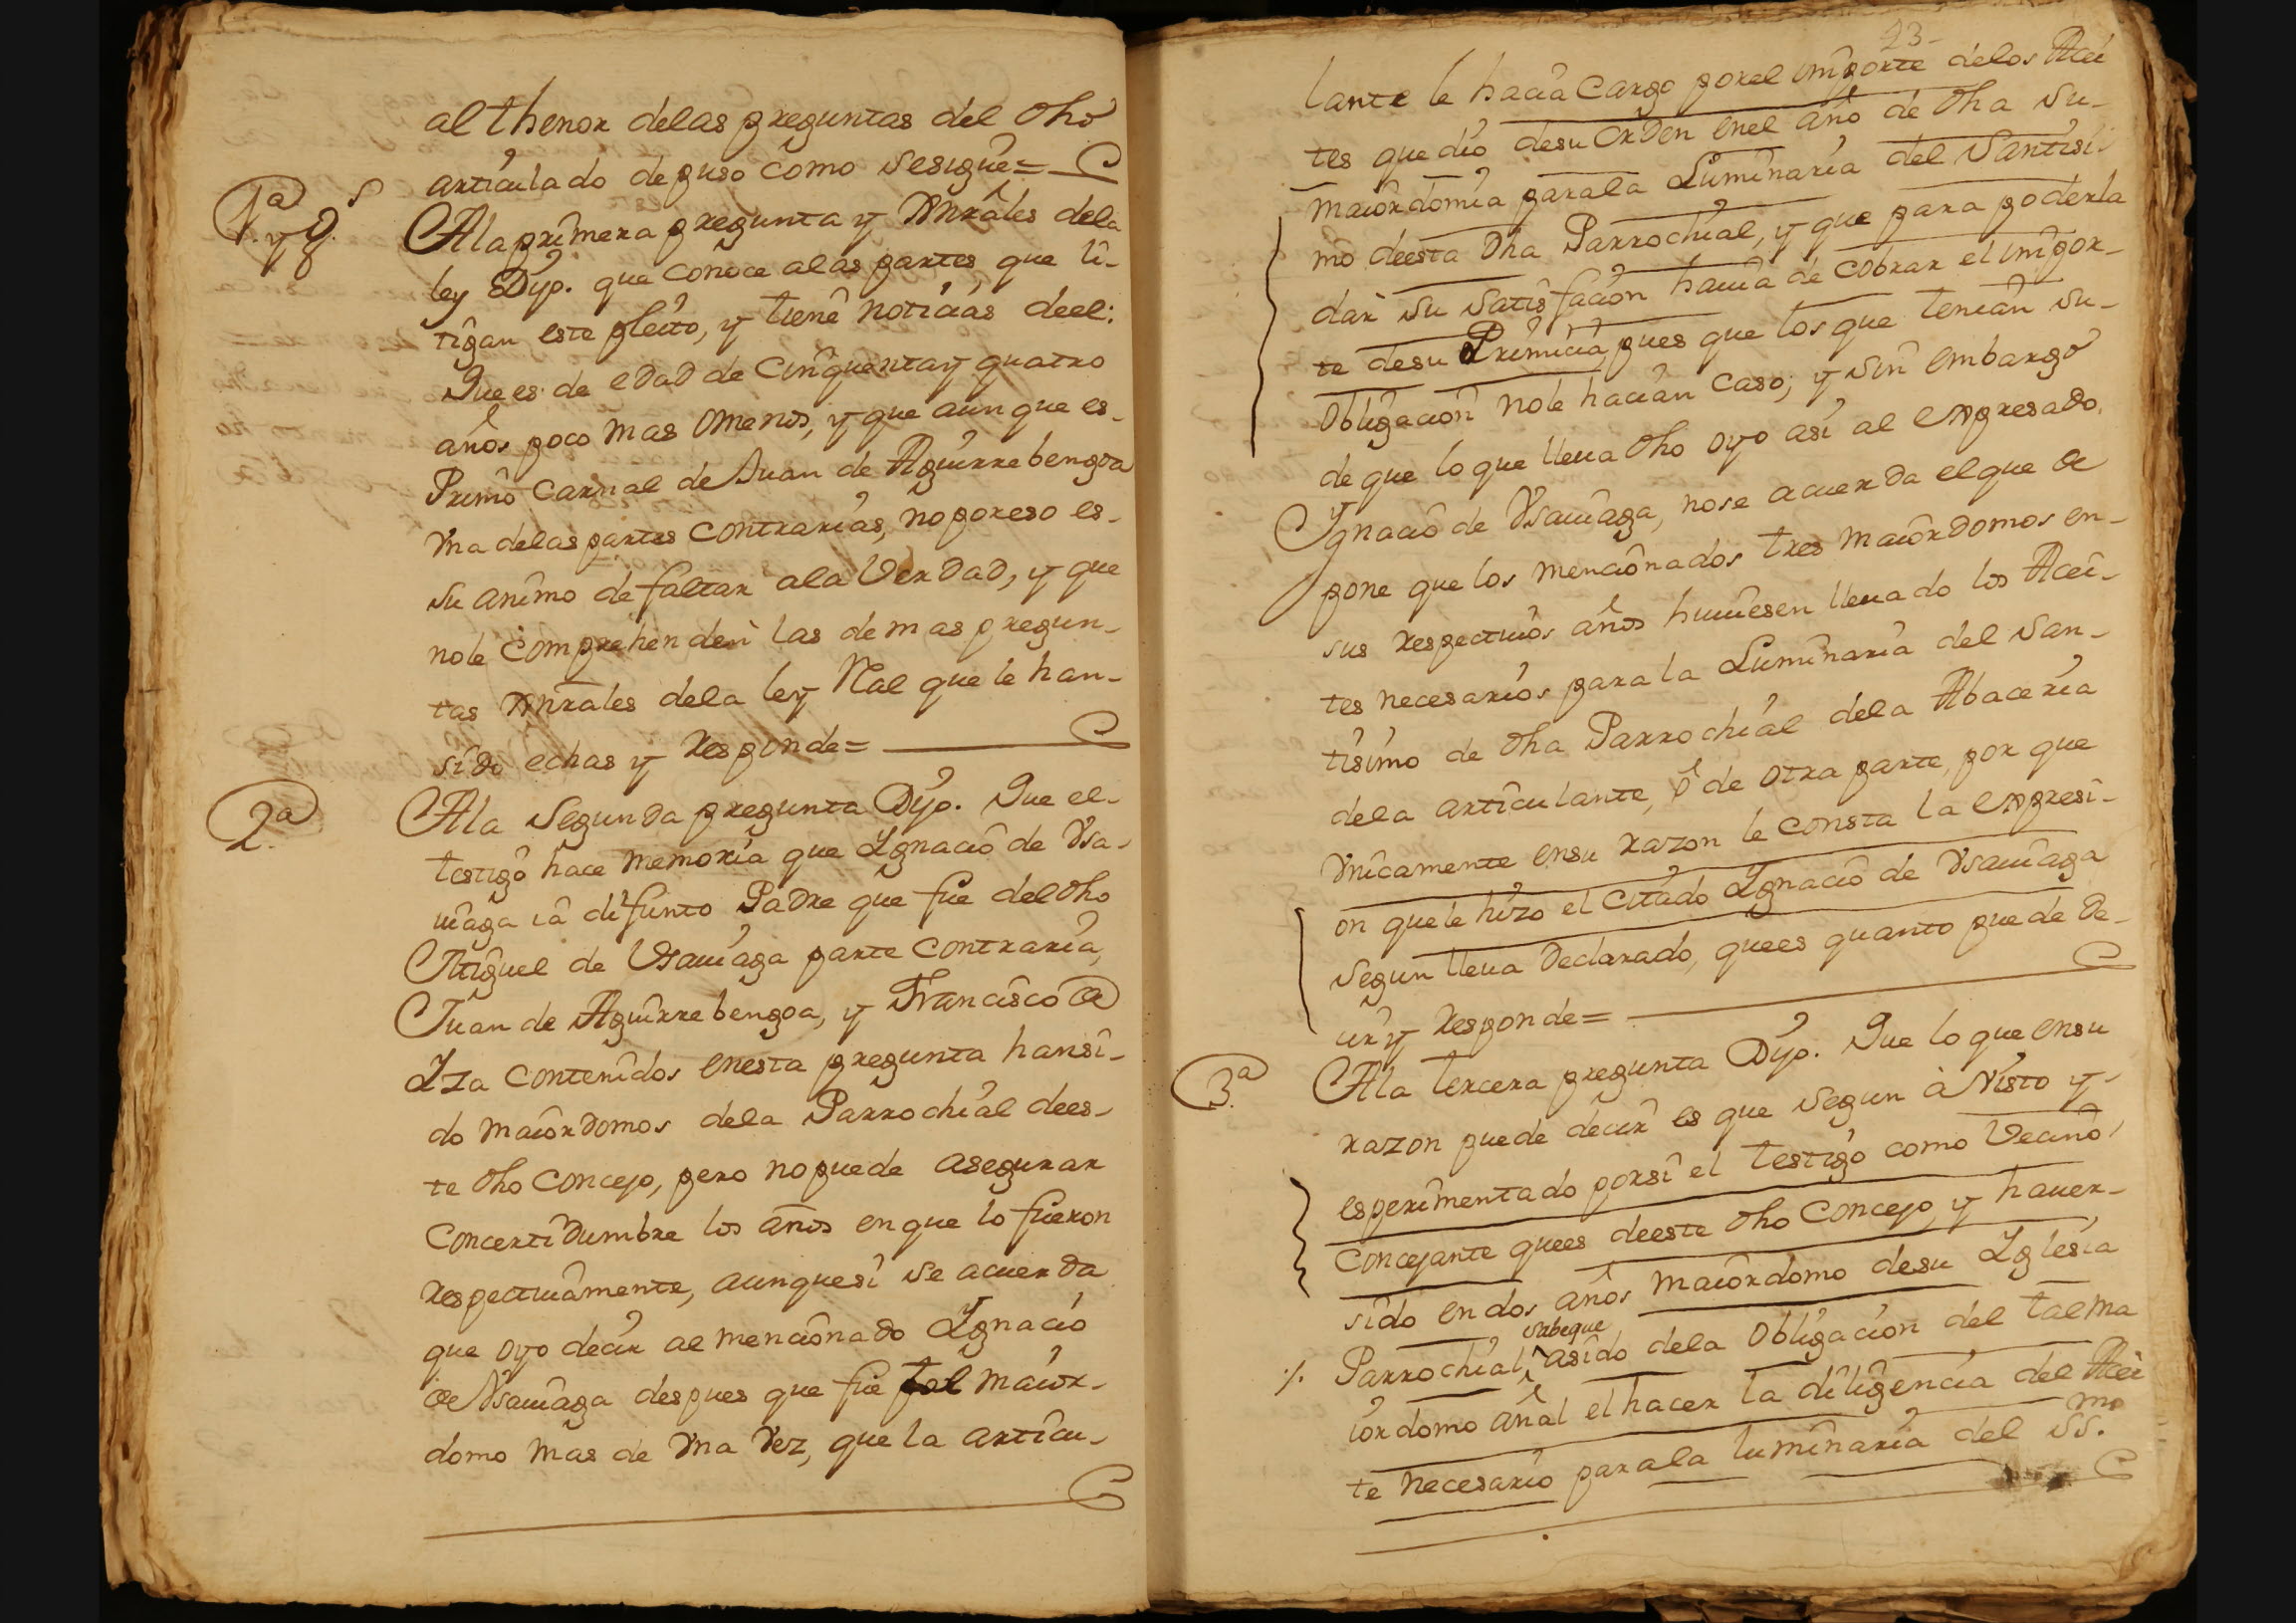 al thenor delas preguntas del dho
articulado depuso como sesigue=
1ª y gs
Ala primera pregunta y Gnrales dela
ley Dijo. que conoce alas partes que li-
tigan este pleito, y tiene noticias deel:
Que es de edad de cinquentay quatro
años poco mas omenos, y que aun que es-
Primo carnal de Juan de Aguirrebengoa
Vna delas partes contrarias, noporeso es-
su animo de faltar ala Verdad, y que
nole comprehenden las demas pregun-
tas Gnrales dela ley Ral que le han-
sido echas y responde=
2ª
Ala segunda pregunta Dijo. Que el-
testigo hace memoria que Ygnacio de Vsa-
uiaga ia difunto Padre que fue del dho
Miguel de Vsauiaga parte contraria,
Juan de Aguirrebengoa, y Francisco de
Yza contenidos enesta pregunta hansi-
do maiordomos dela Parrochial dees-
te dho concejo, pero nopuede asegurar
concertidumbre los años en que lo fueron
respectiuamente, aunquesi se acuerda
que oyo decir al mencionado Ygnacio
de Vsauiaga despues que fue tal maior-
domo mas de Vna Vez, que la articu-
23-
lante le hacia cargo porel importe delos Acei
tes que dio desu orden enel año de dha su-
maiordomia parala Luminaria del Santisi-
mo deesta dha Parrochial, y que para poderla
dar su satisfacion hauia de cobrar el impor-
te desu Primicia, pues que los que tenian su-
obligacion nole hacian caso; y sin embargo
de que lo que lleua dho oyo asi al expresado
Ygnacio de Vsauiaga, nose acuerda elque de
pone que los mencionados tres maiordomos en-
sus respectiuos años huuiesen lleuado los Acei-
tes necesarios para la Luminaria del San-
tisimo de dha Parrochial dela Abaceria
dela articulante, ô de otra parte, por que
Vnicamente ensu razon le consta la expresi-
on quele hizo el citado Ygnacio de Vsauiaga
segun lleua declarado, quees quanto puede de-
cir y responde=
3ª
Ala tercera pregunta Dijo. Que lo que ensu
razon puede decir es que segun à Visto y-
esperimentado porsi el testigo como Vecino
concejante quees deeste dho concejo, y hauer-
sido en dos años maiordomo desu Yglesia
sabeque
Parrochial, asido dela obligacion del tal ma
iordomo añal el hacer la diligencia del Acei
te necesario parala luminaria del SS.mo